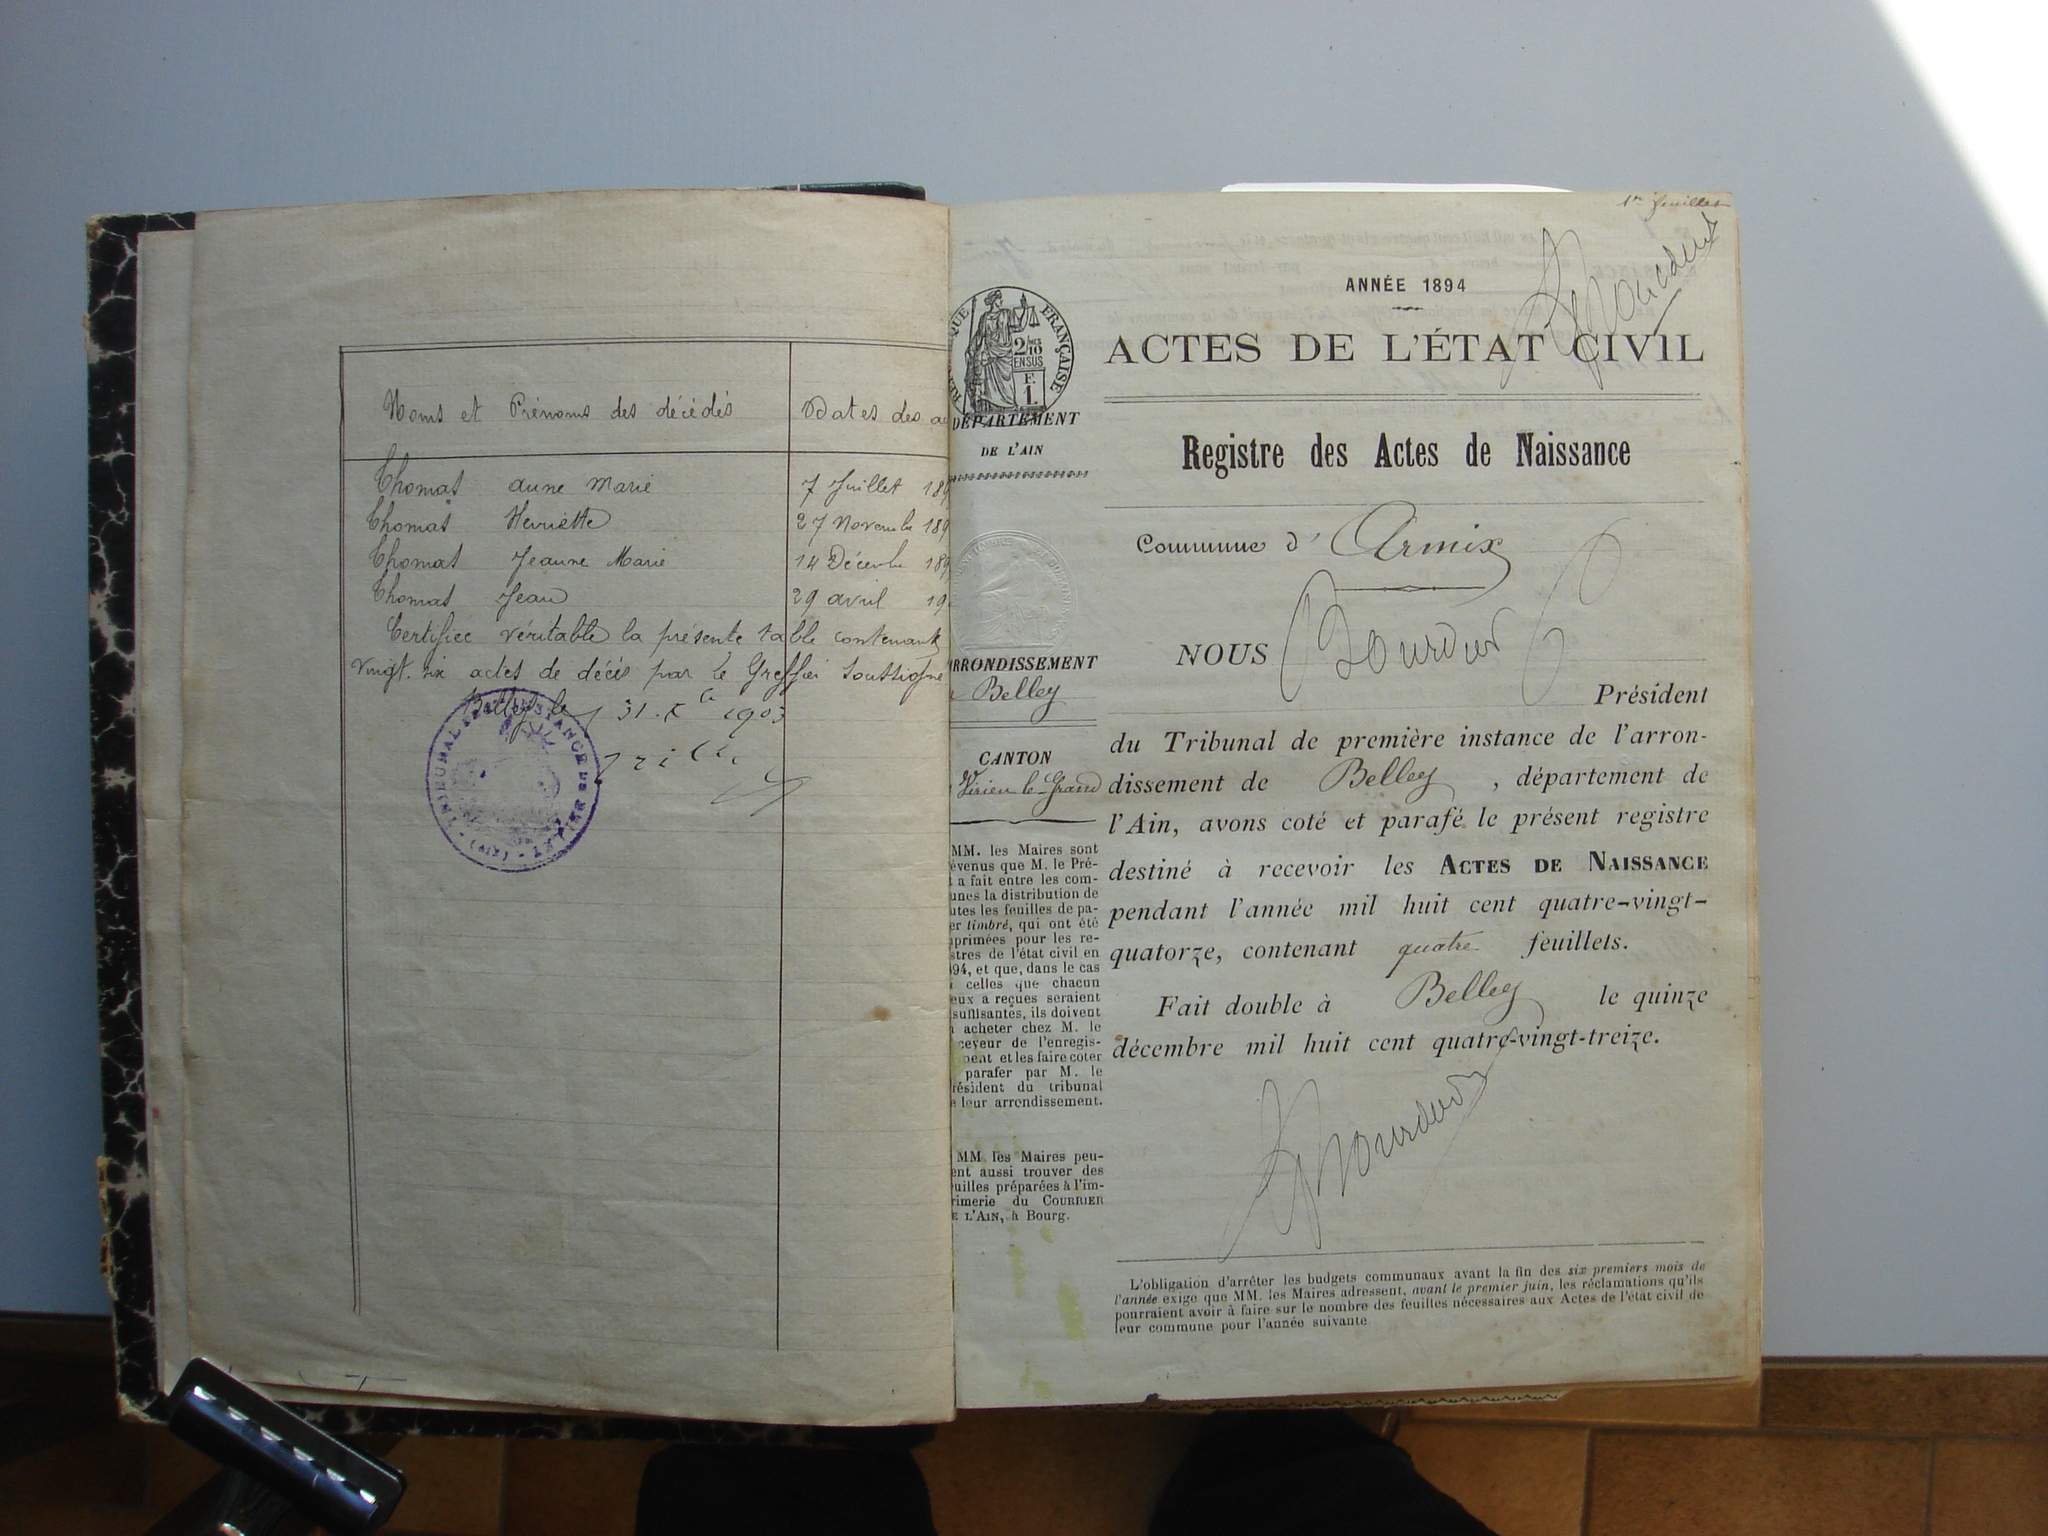 Noms et Prénoms des décédés
Dates des
Thomas Anne Marie 7 Juillet 189
Thomas Henriette 27 Novembre 189
Thomas Jeanne Marie 14 Décembre 189
Thomas Jean 29 avril 19
Certifiée véritable la présente table contenant
vingt-six actes de décès par le Greffier soussigné
Belley le 31 Xbre 1903
TRIBUNAL INSTANCE DE BELLEY (AIN)
1er feuillet
Bourdin
ANNÉE 1894
ACTES DE L'ÉTAT CIVIL
Registre des Actes de Naissance
Commune d' Armix
NOUS Bourdin
Président
du Tribunal de première instance de l'arron-
dissement de Belley, département de
l'Ain, avons coté et parafé le présent registre
destiné à recevoir les ACTES DE NAISSANCE
pendant l'année mil huit cent quatre-vingt-
quatorze, contenant quatre feuillets.
Fait double à Belley le quinze
décembre mil huit cent quatre-vingt-treize.
Bourdin
L'obligation d'arrêter les budgets communaux avant la fin des six premiers mois de
l'année exige que MM. les Maires adressent, avant le premier juin, les réclamations qu'ils
pourraient avoir à faire sur le nombre des feuilles nécessaires aux Actes de l'état civil de
leur commune pour l'année suivante
QUE FRANÇAISE
2/10
EN SUS
F.
1.
DÉPARTEMENT
DE L'AIN
RRONDISSEMENT
Belley
CANTON
Virieu-le-Grand
MM. les Maires sont
évenus que M. le Pré-
t a fait entre les com-
unes la distribution de
utes les feuilles de pa-
er timbré, qui ont été
primées pour les re-
stres de l'état civil en
94, et que, dans le cas
celles que chacun
eux a reçues seraient
suffisantes, ils doivent
acheter chez M. le
ceveur de l'enregis-
ment et les faire coter
parafer par M. le
résident du tribunal
e leur arrondissement.
MM les Maires peu-
ent aussi trouver des
uilles préparées à l'im-
rimerie du COURRIER
E L'AIN, à Bourg.